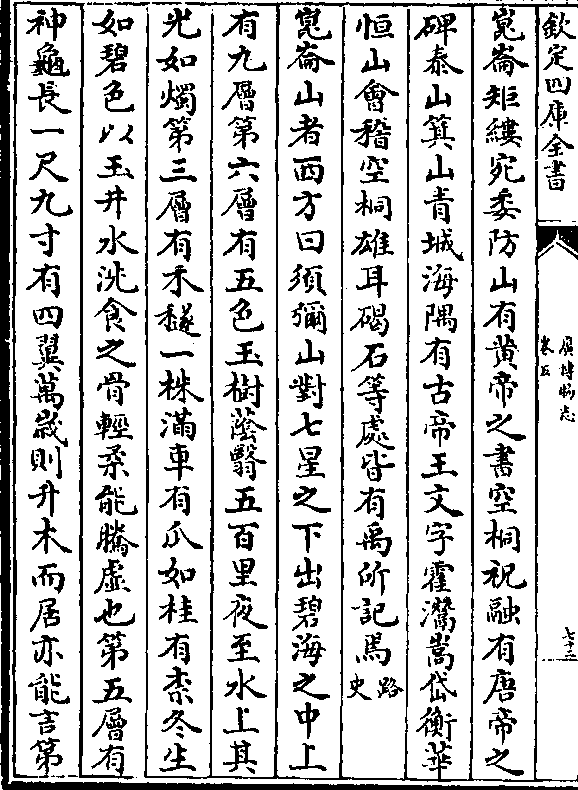 欽定四庫全書
廣博物志
卷五
七十二
崑崙矩縷宛委防山有黄帝之書空桐祝融有唐帝之
碑泰山箕山青城海隅有古帝王文字霍灊嵩岱衡華
恒山會稽空桐雄耳碣石等處皆有禹所記焉路史
崑崙山者西方曰須彌山對七星之下出碧海之中上
有九層第六層有五色玉樹蔭翳五百里夜至水上其
光如燭第三層有禾穟一株滿車有瓜如桂有柰冬生
如碧色以玉井水洗食之骨輕柔能騰虛也第五層有
神龜長一尺九寸有四翼萬歲則升木而居亦能言第